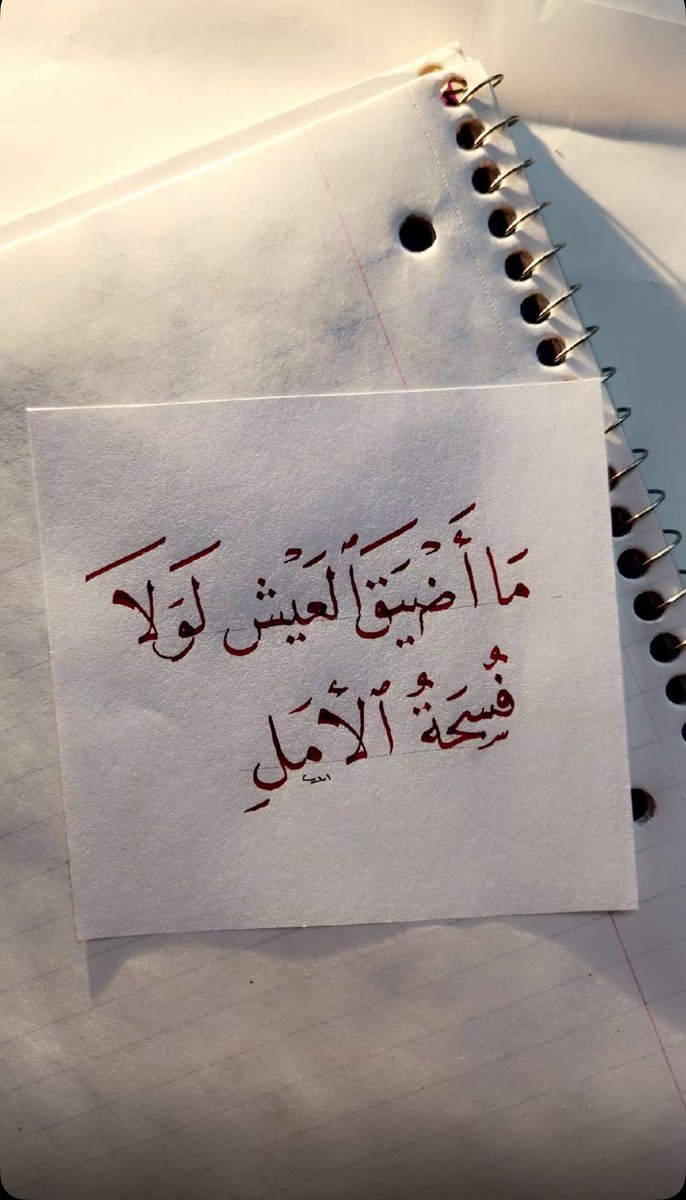 مَا أَضْيَقَ ٱلْعَيْش لَوَلاَ
فُسحَةُ ٱلأَمَلِ